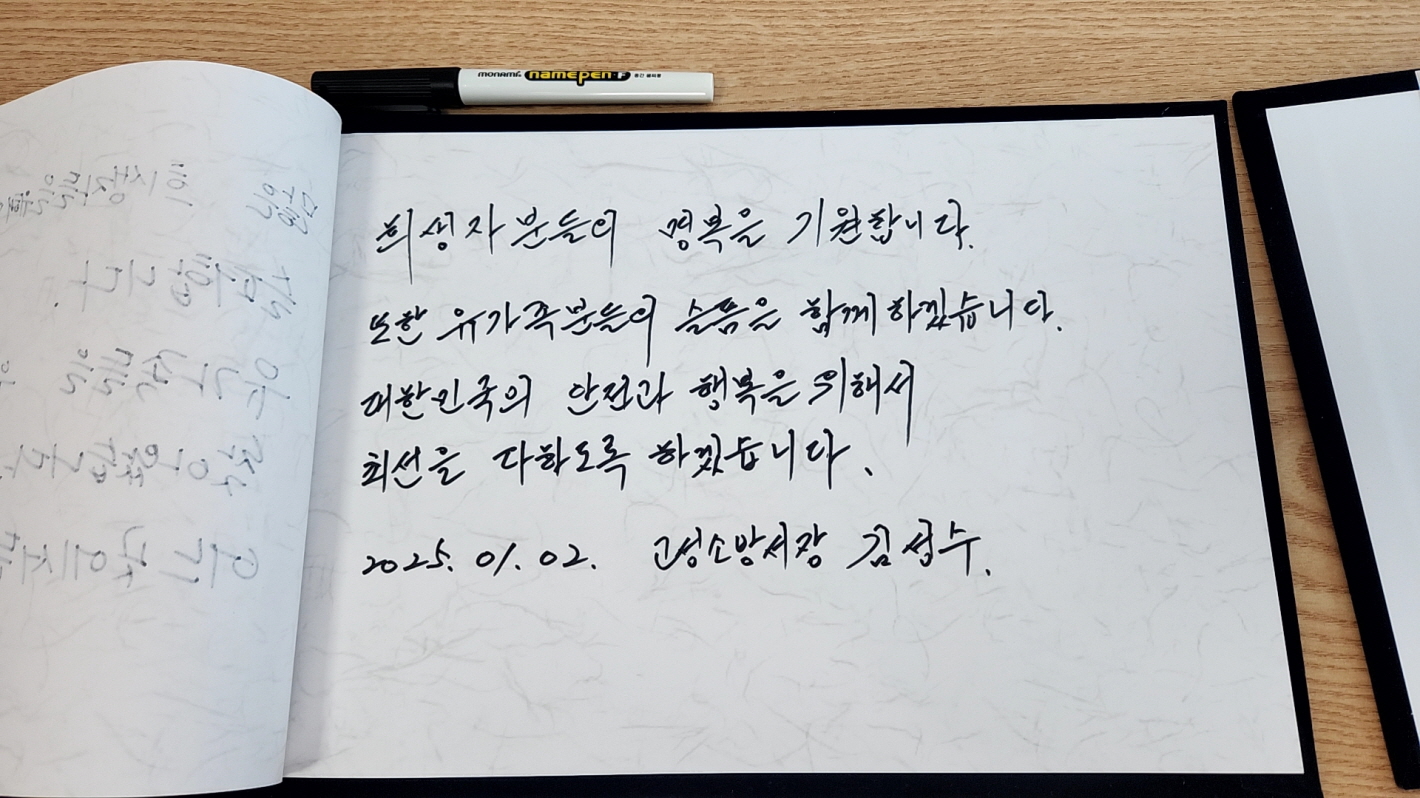 monami namepen F
희생자분들의 명복을 기원합니다.
또한 유가족분들의 슬픔을 함께하겠습니다.
대한민국의 안전과 행복을 위해서
최선을 다하도록 하겠습니다.
2025. 01. 02. 고성소방서장 김성수.